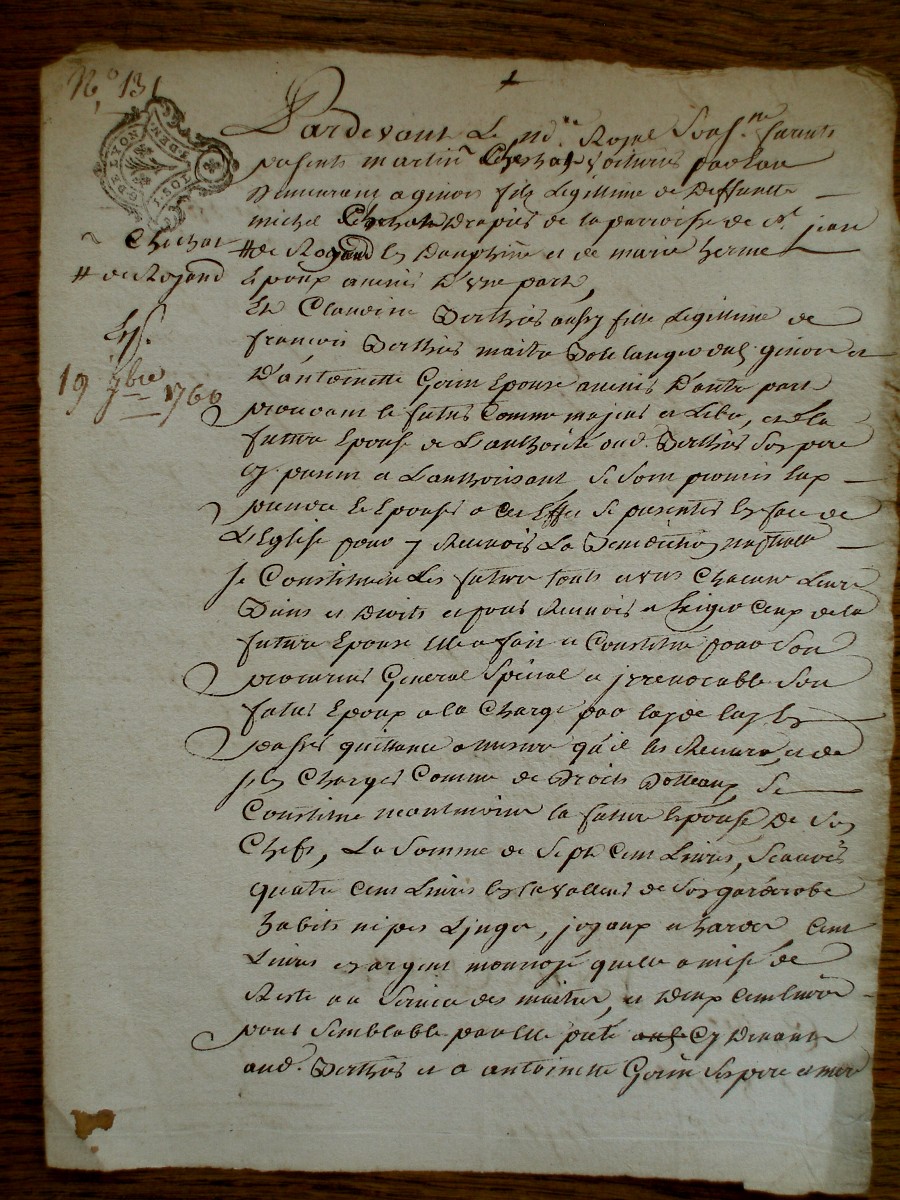 N.º 131
GEN. DE LYON
1. SOL
Pardevant Le Nre Royal Soussigné furent
présents martin Chechat voiturier par eau
Demeurant a givors fils Legittime de Deffuncts
michel Chechat Drapier de la parroisse de St jean
# de Royand En Dauphiné et de marie
Epoux avenir D'vne part,
Et Claudine Berthois aussy fille Legittime de
françois Berthois maitre Boulanger dud. givors et
D'antoinette Gorin Epouse avenir D'autre part
procedant le futur Comme majeur et Libre, et la
future Epouse de L'authorité dud. Berthois Son pere
Cy present et L'authorisant Se Sont promis
prendre Et Epouser a Cet Effet Se presenter En face de
L'Eglise pour y Recevoir La Benediction nuptialle
Se Constituent Les futurs touts et uns Chacuns Leurs
Biens et Droits et pour Recevoir et Exiger Ceux de la
future Epouse Elle a fait et Constitué pour Son
procureur General Special et jrrevocable Son
futur Epoux a la Charge par luy de
passer quittance a mesure qu'il les Recevra, et de
les Charger Comme de Droits Dotteaux, Se
Constitue neantmoins la future Epouse De Son
Chefs, La Somme de Sept Cent Livres, Scavoir
quatre Cent Livres En la valleur de Son garderobe
habits nipes Linges, joyaux et hardes Cent
Livres en argent monnoyé quelle a mise de
Reste au Service des maitres, et Deux Cent livres
pour Semblable par Elle prété Cy Devant
aud. Berthois et a antoinette Gorin Ses pere et mere
Chechat
# de Royand
19 7bre 1760